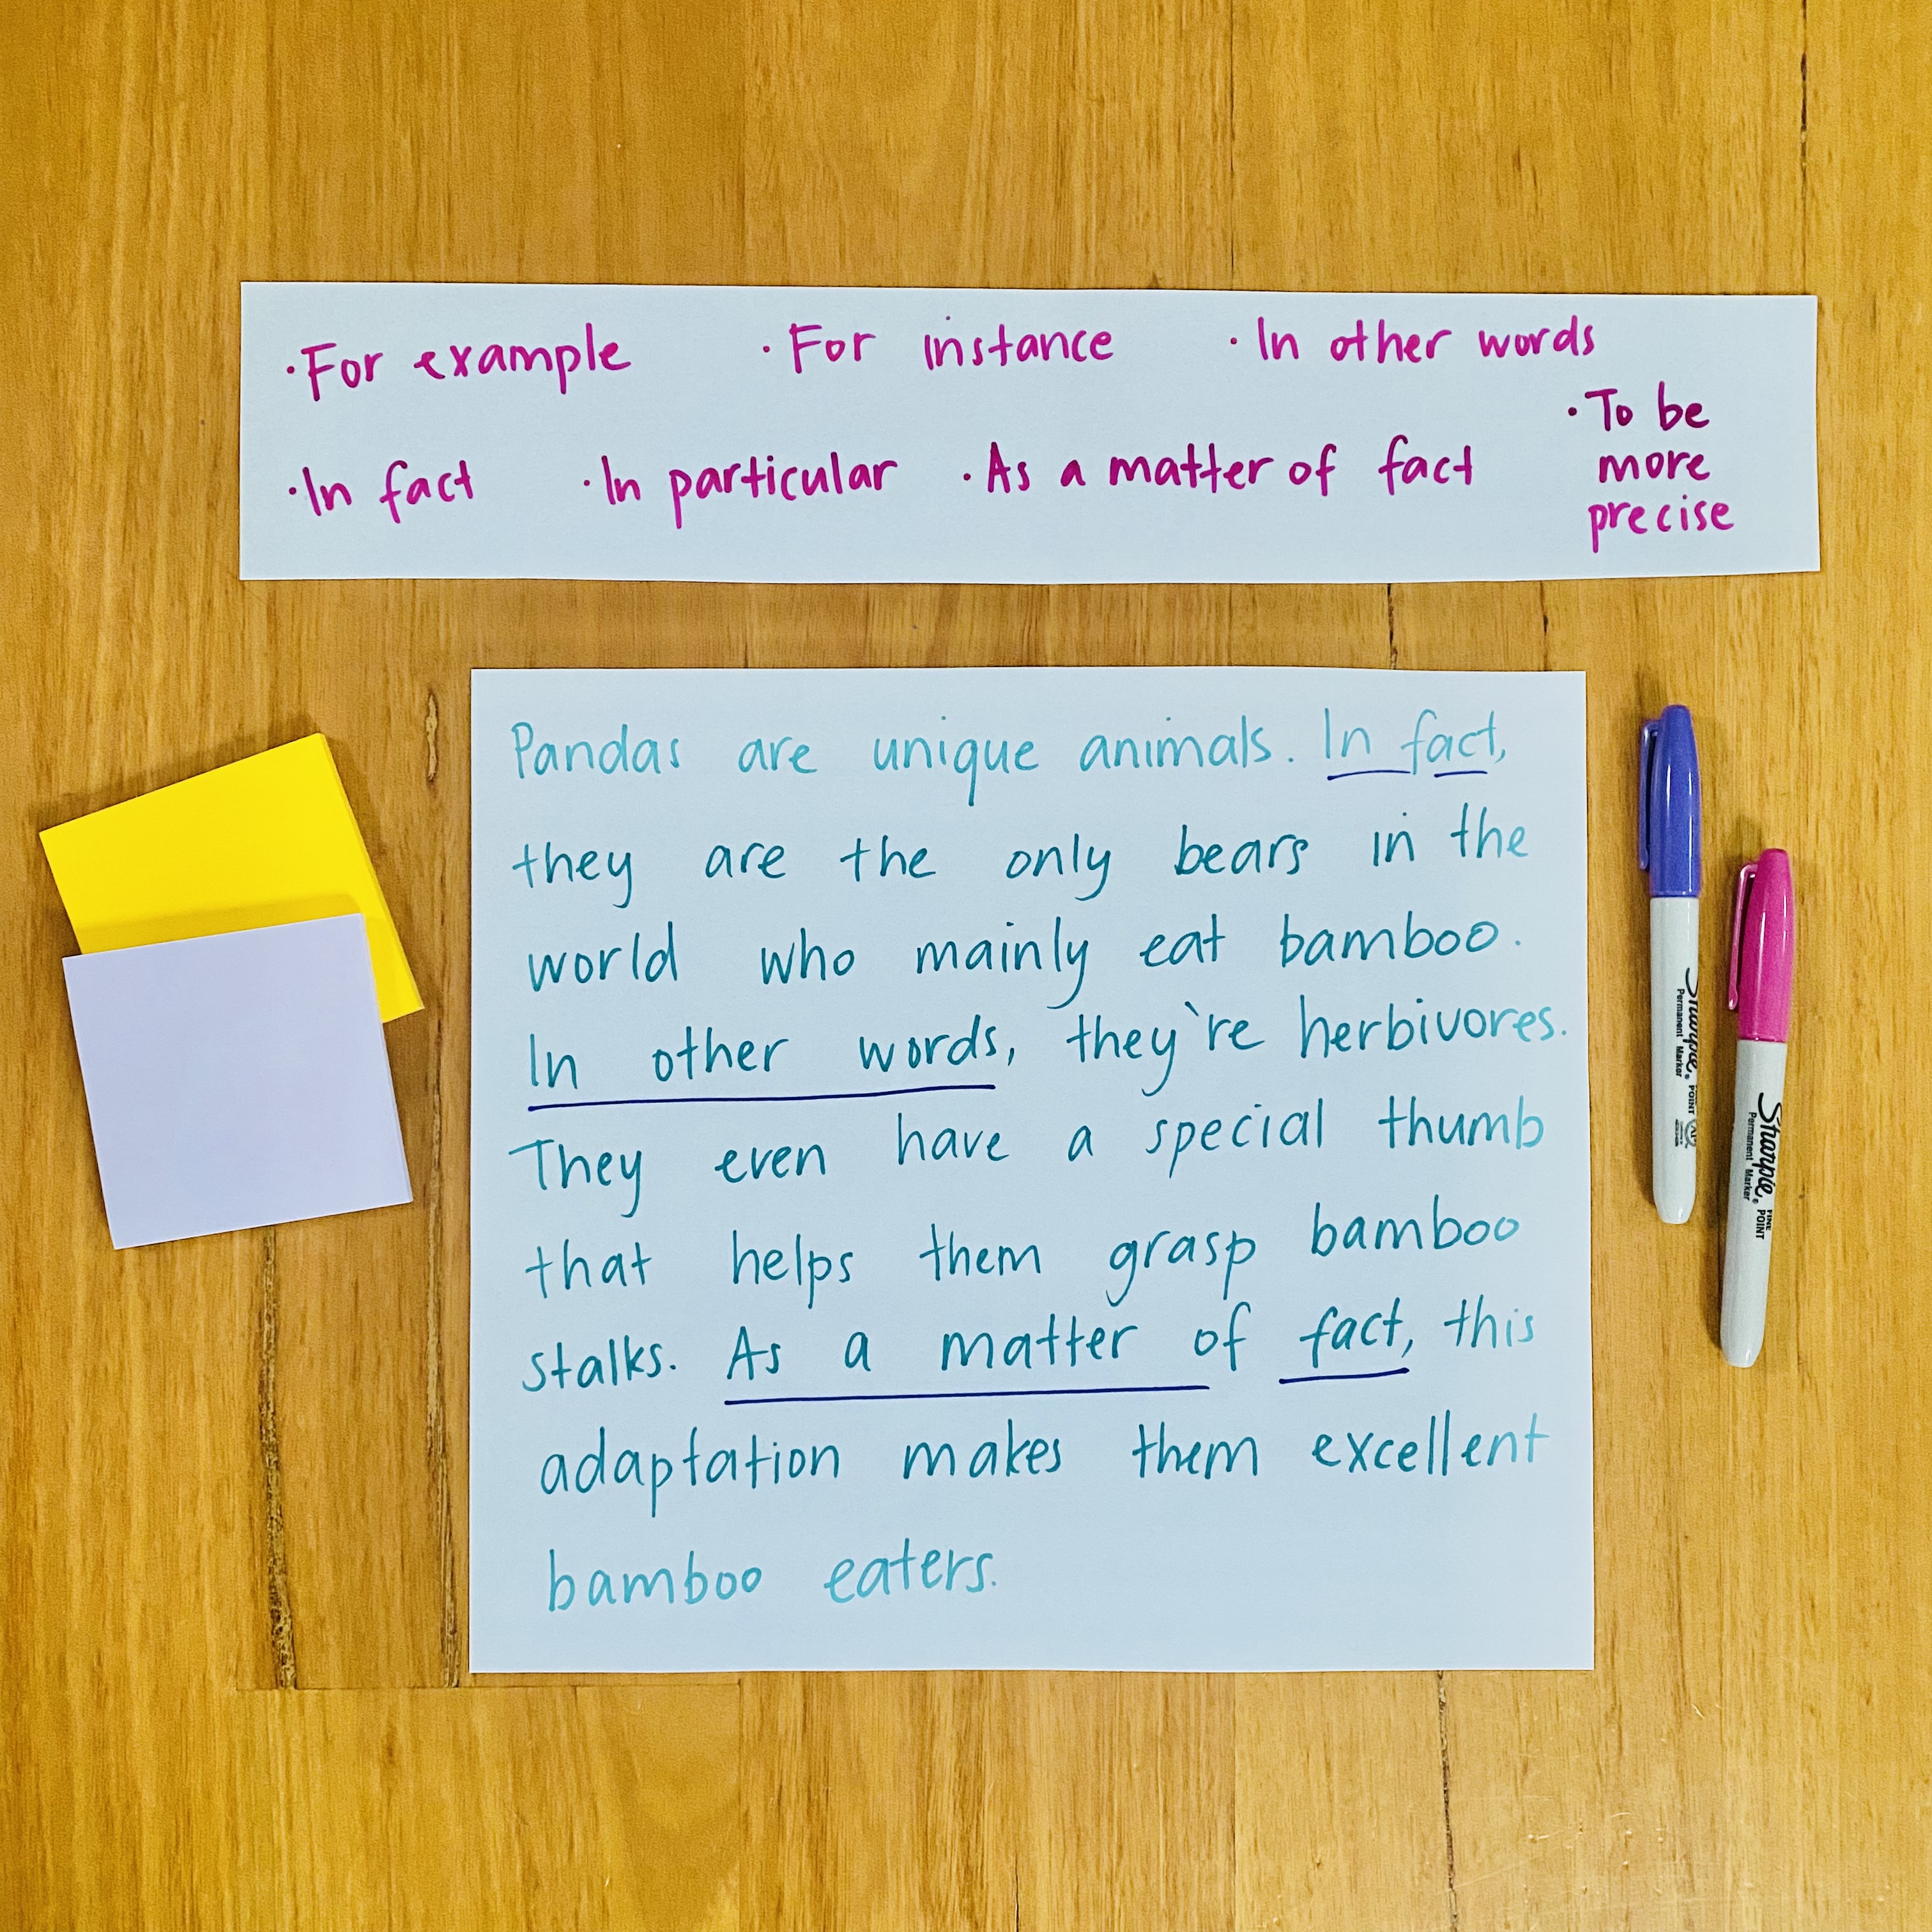 · For example · For instance · In other words
· In fact · In particular · As a matter of fact
· To be
more
precise
Pandas are unique animals. In fact,
they are the only bears in the
world who mainly eat bamboo.
In other words, they`re herbivores.
They even have a special thumb
that helps them grasp bamboo
stalks. As a matter of fact, this
adaptation makes them excellent
bamboo eaters.
Sharpie®
Permanent Marker
POINT
Sharpie®
Permanent Marker
FINE
POINT